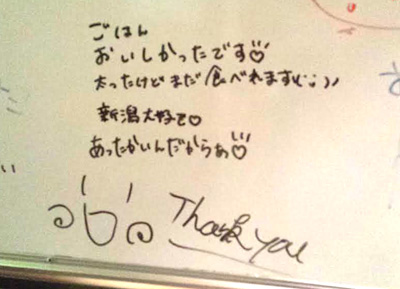 ごはん
おいしかったです♡
太ったけどまだ食べれます(;;)
新潟大好き♡
あったかいんだからぁ♡
Thank you